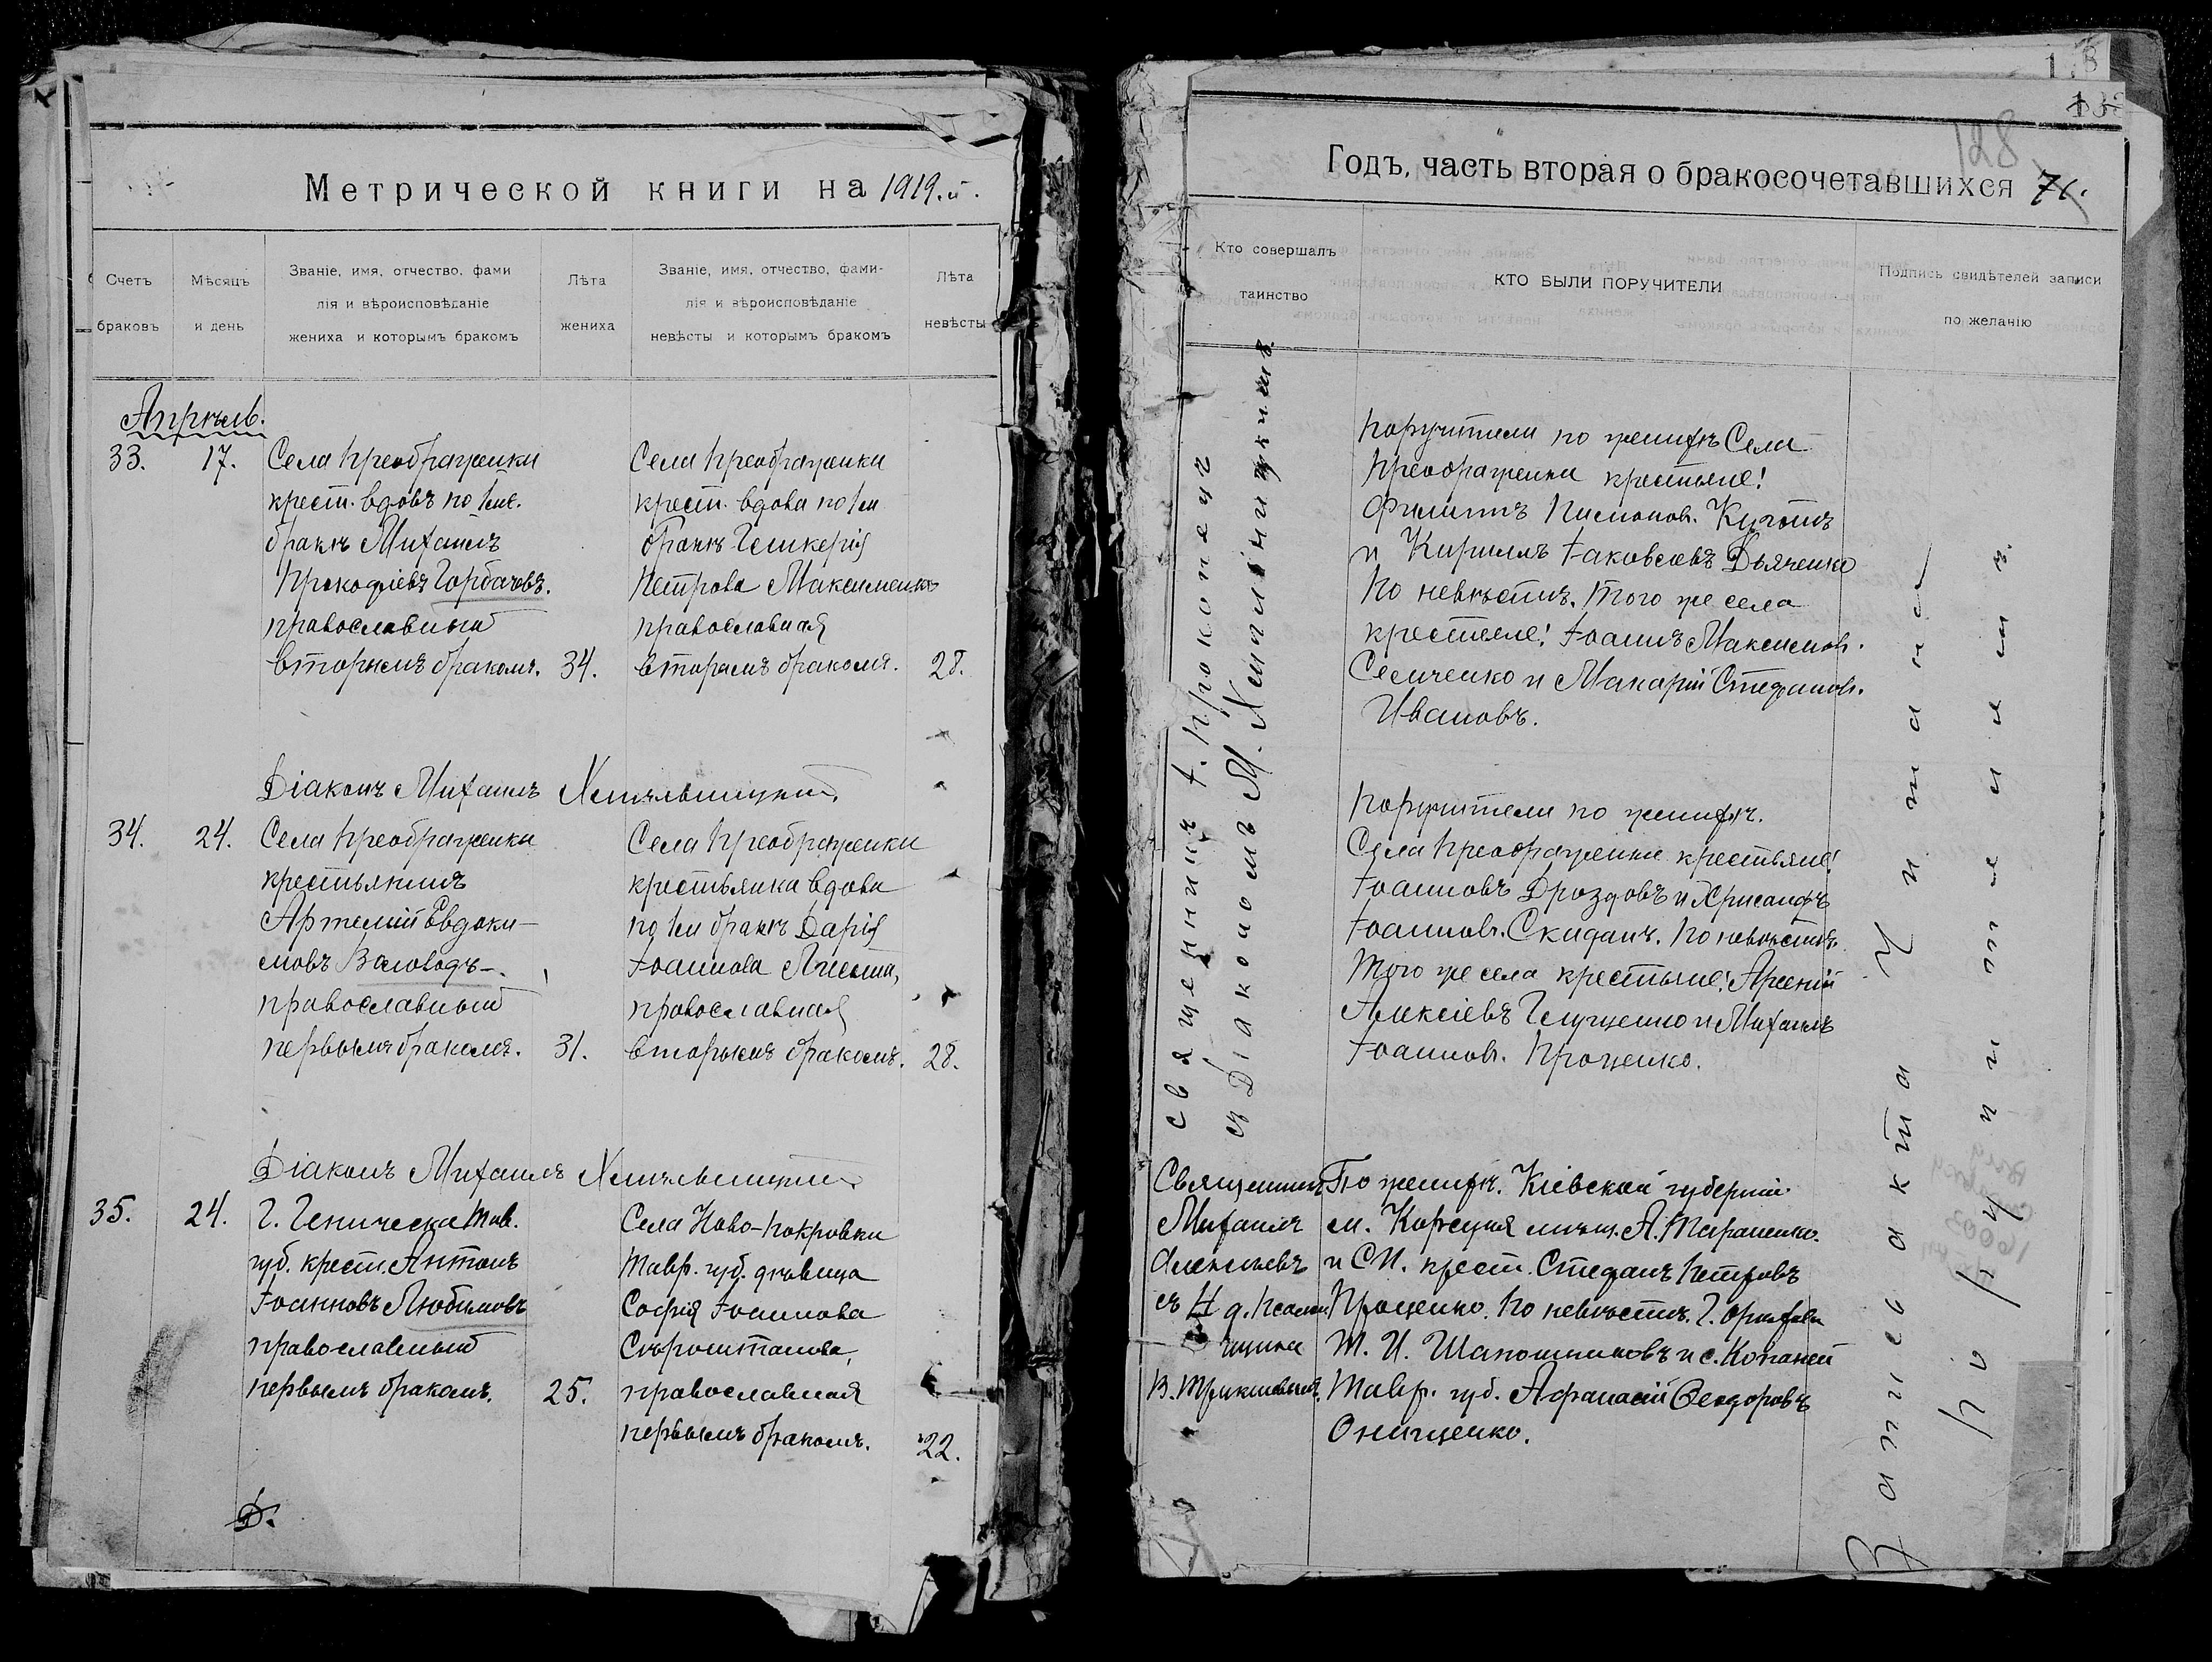 Метрической книги на 1919.й.
Счетъ браковъ
Мѣсяцъ и день
Званіе, имя, отчество, фами
лія и вѣроисповѣданіе
жениха и которымъ бракомъ
Лѣта жениха
Званіе, имя, отчество, фами-
лія и вѣроисповѣданіе
невѣсты и которымъ бракомъ
Лѣта невѣсты
Апрѣль.
33. 17.
Села Преображенки
крест. вдовъ по 1мъ
бракѣ Михаилъ
Прокофіевъ Горбачовъ.
православный
вторымъ бракомъ. 34.
Села Преображенки
крест. вдова по 1мъ
бракѣ Гликерія
Петрова Максименко
православная
вторымъ бракомъ. 28.
Діаконъ Михаилъ Хмѣльницкий.
34. 24.
Села Преображенки
крестьянинъ
Артемій Евдоки-
мовъ Валовадъ-.
православный
первымъ бракомъ. 31.
Села Преображенки
крестьянка вдова
по 1мъ бракѣ Дарія
Іоаннова
православная
вторымъ бракомъ. 28.
Діаконъ Михаилъ Хмѣльницкий
35. 24.
Г. Геническа Тав.
губ. крест. Антонъ
Іоанновъ Любимовъ
православный
первымъ бракомъ. 25.
Села Ново-Покровки
Тавр. губ. дѣвица
Софія Іоаннова
Сѣроштанова,
православная
первымъ бракомъ. 22.
Д.
128
Годъ, часть вторая о бракосочетавшихся 76.
Кто совершалъ
таинство
КТО БЫЛИ ПОРУЧИТЕЛИ
Подпись свидѣтелей записи
по желанію
Священникъ І. Прокопецъ
съ Діакономъ М. Хмѣльницкимъ.
Поручители по женихѣ Села
Преображенки крестьяне:
Филиппъ
и Кириллъ Іаковлевъ Дьяченко
По невѣстѣ. Того же села
крестьяне: Іоаннъ Максимов.
Семченко и Макарій Стефанов.
Ивановъ.
Поручители по женихѣ.
Села Преображенки крестьяне:
Іоанновъ Дроздовъ и Хрисанфъ
Іоаннов. Скиданъ. По невѣстѣ.
Того же села крестьяне: Арсеній
Алексіевъ Глущенко и Михаилъ
Іоаннов. Проценко.
Священникъ
Михаилъ
Алексѣевъ
съ И д. псалом
щика
По женихѣ. Кіевской губерніи
м. Корсуня мѣщ. А. Тараненко.
и С.П. крест. Стефанъ Петровъ
Проценко. По невѣстѣ. Г. Орѣхова
Т. И. Шапошниковъ и с. Копаней
Тавр. губ. Афанасій Ѳеодоровъ
Онищенко.
Запись акта читана
при